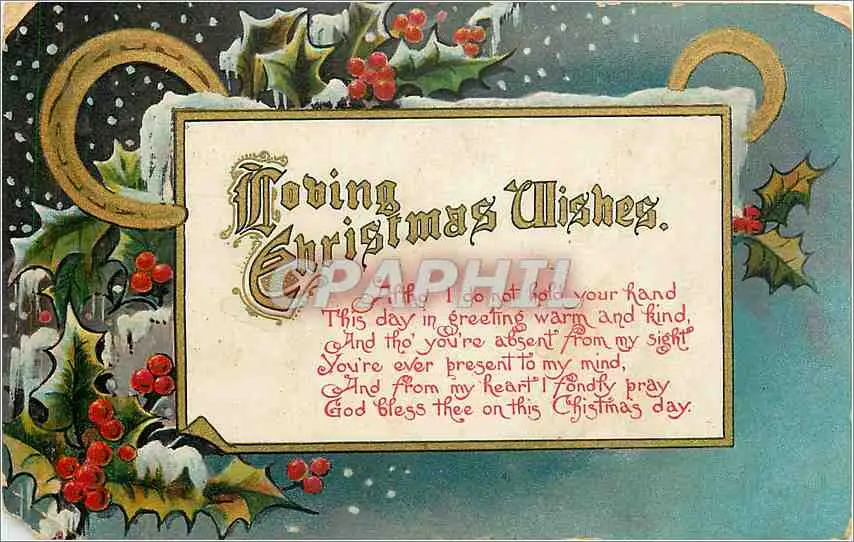 Loving
Christmas Wishes.
CPAPHIL
Altho' I do not hold your hand
This day in greeting warm and kind,
And tho' you're absent from my sight
You're ever present to my mind,
And from my heart I fondly pray
God bless thee on this Chistmas day.